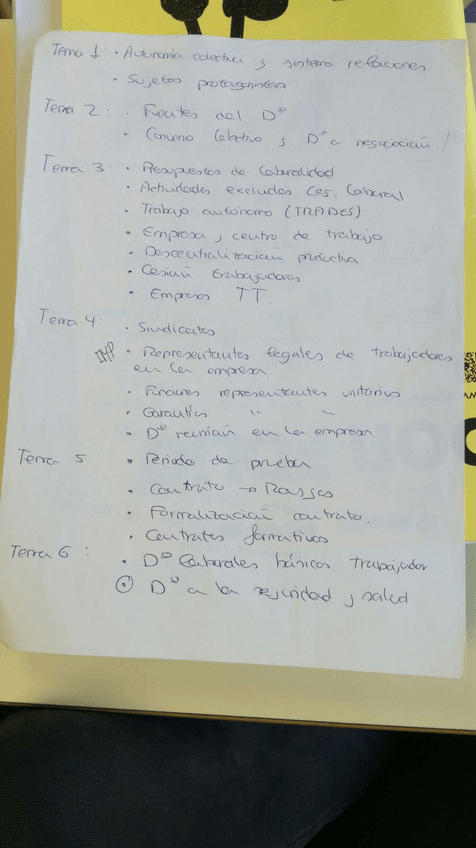 Tema 1: · Autonomía colectiva y sistema relaciones
· Sujetos protagonistas
Tema 2: · Fuentes del Dº
· Convenio Colectivo y Dº a negociación
Tema 3: · Presupuestos de laboralidad
· Actividades excluidas Leg. Laboral
· Trabajo autónomo (TRADES)
· Empresa y centro de trabajo
· Descentralización productiva
· Cesión trabajadores
· Empresas TT.
Tema 4: · Sindicatos
IMP · Representantes legales de trabajadores
en la empresa
· Funciones representantes unitarios
· Garantías " "
· Dº reunión en la empresa
Tema 5 · Periodo de prueba
· Contrato → Rasgos
· Formalización contrato.
· Contratos formativos
Tema 6: · Dº laborales básicos trabajador
· Dº a la seguridad y salud